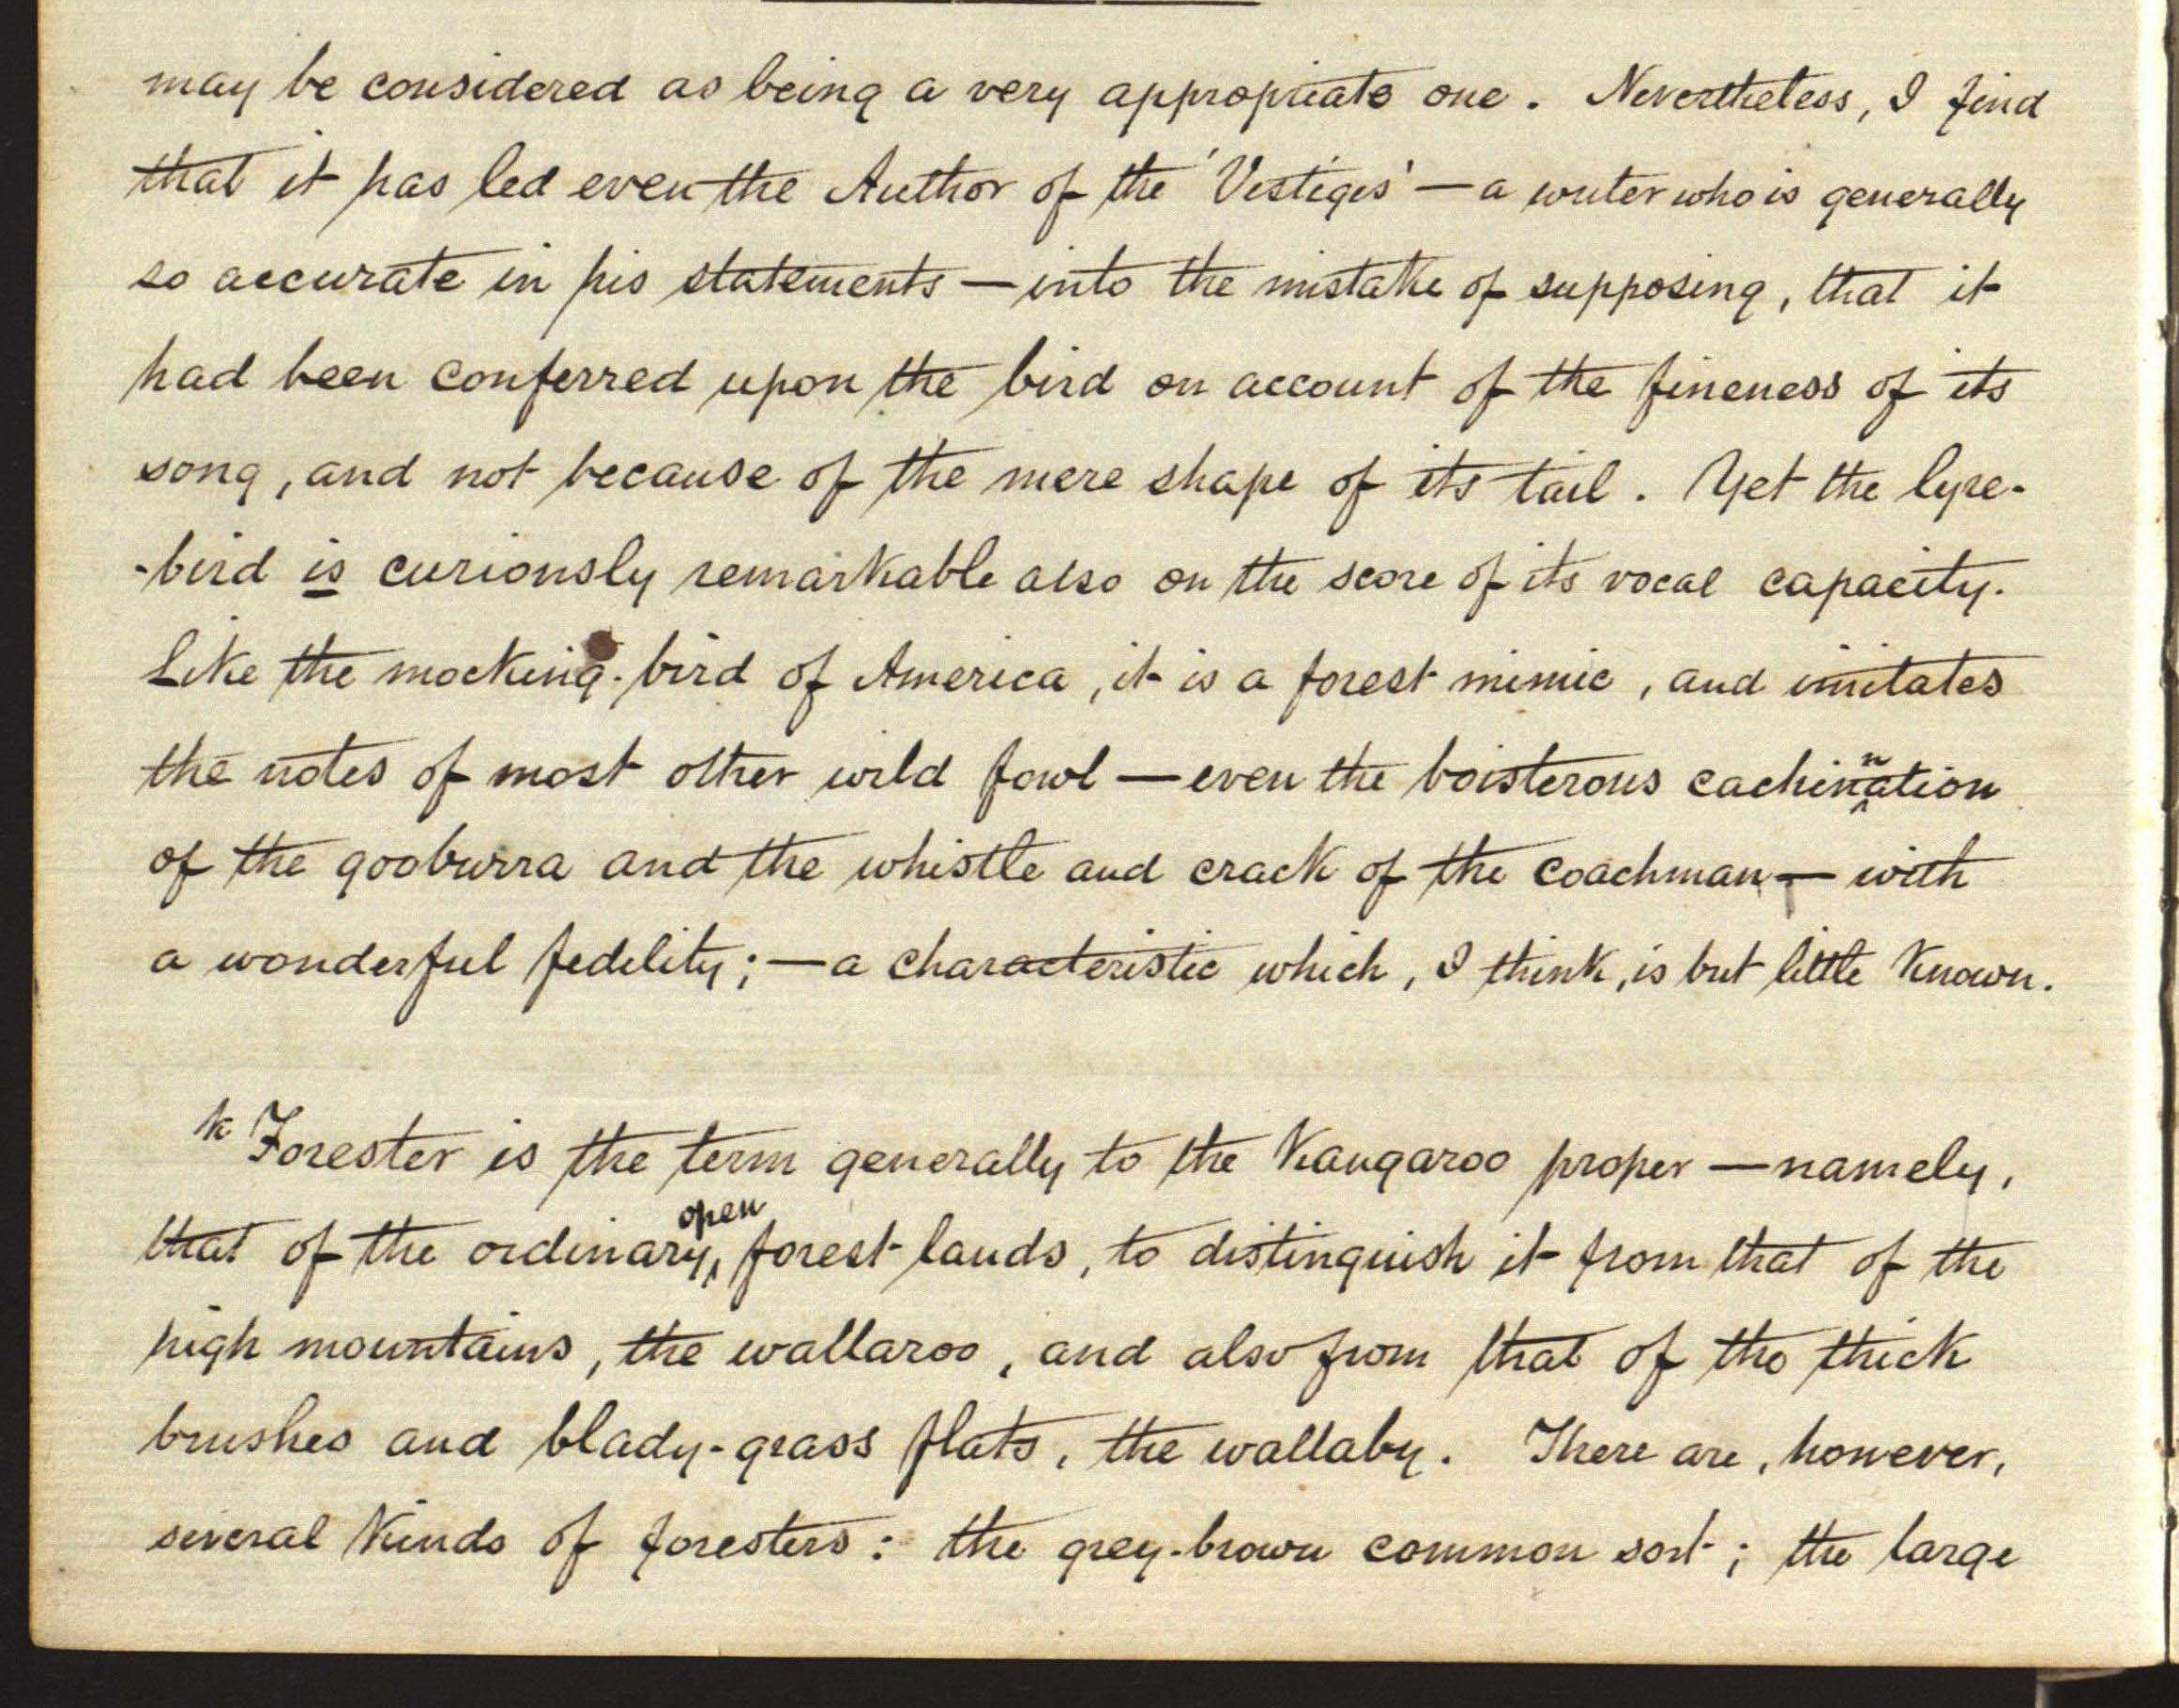 may be considered as being a very appropriate one. Nevertheless, I find
that it has led even the Author of the 'Vestiges' — a writer who is generally
so accurate in his statements — into the mistake of supposing, that it
had been conferred upon the bird on account of the fineness of its
song, and not because of the mere shape of its tail. Yet the lyre-
-bird is curiously remarkable also on the score of its vocal capacity.
Like the mocking-bird of America, it is a forest mimic, and imitates
the notes of most other wild fowl — even the boisterous cachinnation
of the gooburra and the whistle and crack of the coachman — with
a wonderful fidelity; — a characteristic which, I think, is but little known.
k Forester is the term generally to the Kangaroo proper — namely,
that of the ordinary, open forest lands, to distinguish it from that of the
high mountains, the wallaroo, and also from that of the thick
brushes and blady-grass flats, the wallaby. There are, however,
several kinds of foresters: the grey-brown common sort; the large